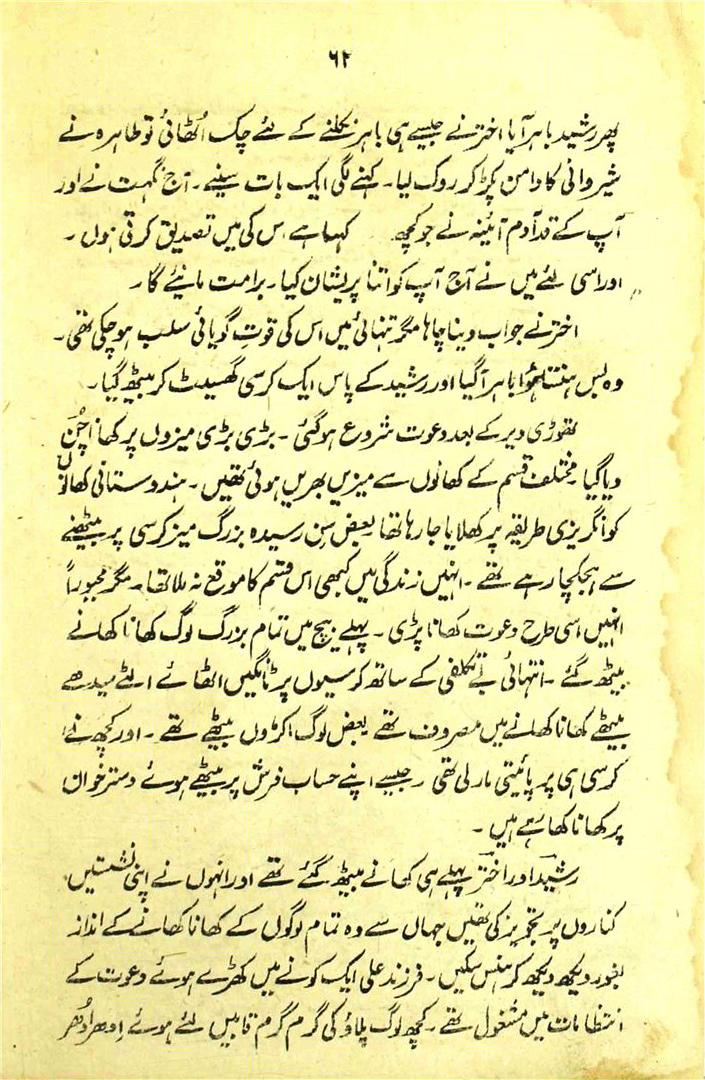 ۶۲
پھر رشید باہر آیا اختر نے جیسے ہی باہر نکلنے کے لئے چک اُٹھائی تو طاہرہ نے
شیروانی کا دامن پکڑ کر روک لیا۔ کہنے لگی ایک بات سنیے۔ آج نگہت نے اور
آپ کے قدآدم آئینہ نے جو کچھ کہا ہے اس کی میں تصدیق کرتی ہوں۔
اور اسی لئے میں نے آج آپ کو اتنا پریشان کیا۔ برا مت مانیئے گا۔
اختر نے جواب دینا چاہا مگر تنہائی میں اس کی قوتِ گویائی سلب ہو چکی تھی۔
وہ بس ہنستا ہوا باہر آ گیا اور رشید کے پاس ایک کرسی گھسیٹ کر بیٹھ گیا۔
تھوڑی دیر کے بعد دعوت شروع ہو گئی۔ بڑی بڑی میزوں پر کھانا چُن
دیا گیا مختلف قسم کے کھانوں سے میزیں بھریں ہوئی تھیں۔ ہندوستانی کھانوں
کو انگریزی طریقہ پر کھلایا جا رہا تھا بعض سِن رسیدہ بزرگ میز کرسی پر بیٹھنے
سے ہچکچا رہے تھے۔ انہیں زندگی میں کبھی اس قسم کا موقع نہ ملا تھا۔ مگر مجبوراً
انہیں اسی طرح دعوت کھانا پڑی۔ پہلے بیچ میں تمام بزرگ لوگ کھانا کھانے
بیٹھ گئے۔ انتہائی بے تکلفی کے ساتھ کرسیوں پر ٹانگیں اٹھائے الٹے سیدھے
بیٹھے کھانا کھانے میں مصروف تھے بعض لوگ اکڑوں بیٹھے تھے۔ اور کچھ نے
کرسی ہی پر پالتی مار لی تھی جیسے اپنے حساب فرش پر بیٹھے ہوئے دسترخوان
پر کھانا کھا رہے ہیں۔
رشید اور اختر پہلے ہی کھانے بیٹھ گئے تھے اور انہوں نے اپنی نشستیں
کناروں پر تجویز کی تھیں جہاں سے وہ تمام لوگوں کے کھانا کھانے کے انداز
بغور دیکھ دیکھ کر ہنس سکیں۔ فرزند علی ایک کونے میں کھڑے ہوئے دعوت کے
انتظامات میں مشغول تھے۔ کچھ لوگ پلاؤ کی گرم گرم قابیں لئے ہوئے اِدھر اُدھر